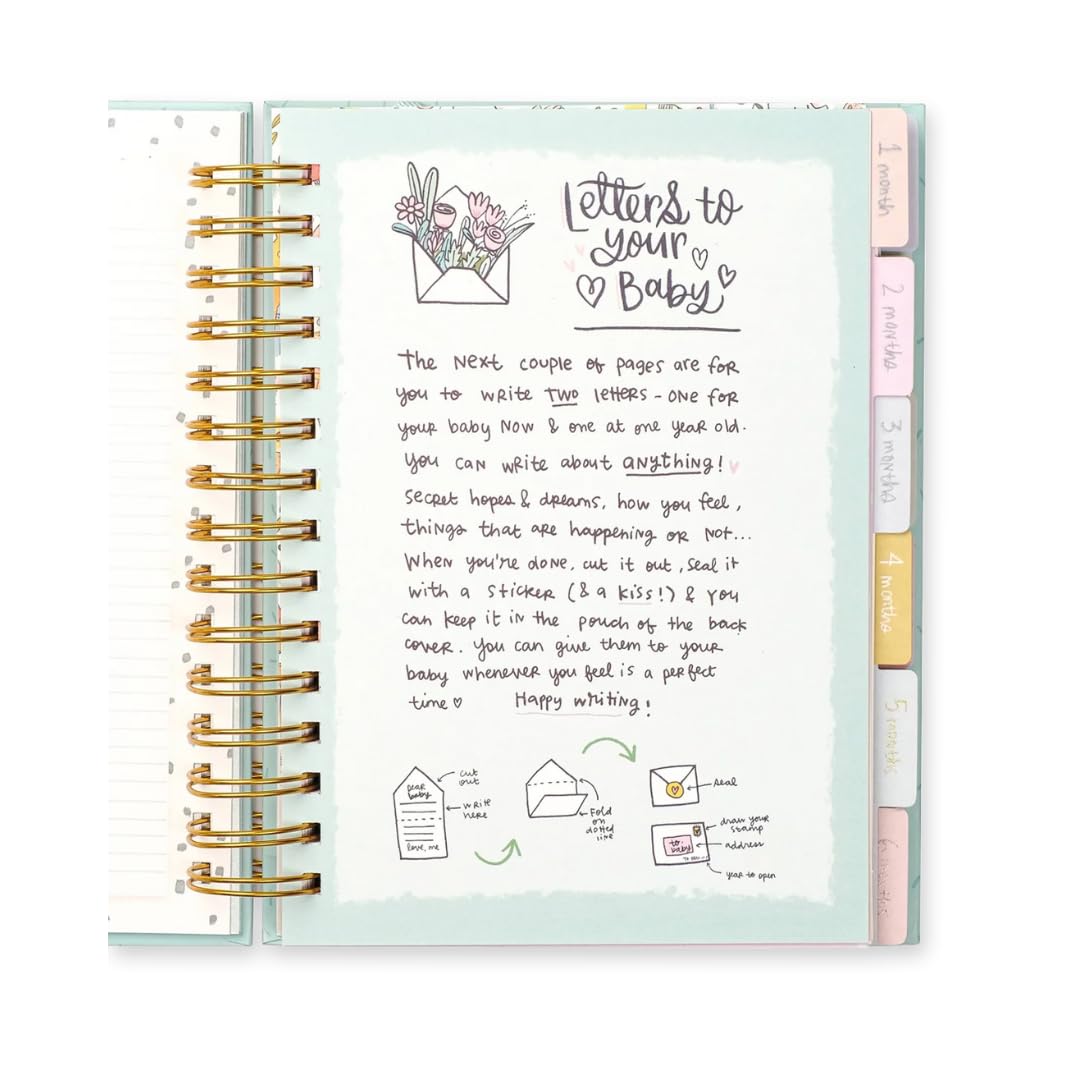 Letters to
your
Baby
The next couple of pages are for
you to write two letters - one for
your baby now & one at one year old.
You can write about anything!
Secret hopes & dreams, how you feel,
things that are happening or not...
When you're done, cut it out, seal it
with a sticker (& a kiss!) & you
can keep it in the pouch of the back
cover. You can give them to your
baby whenever you feel is a perfect
time
Happy writing!
dear
baby
love, me
cut
out
write
here
Fold
on
dotted
line
seal
to:
baby
draw your
stamp
address
year to open
1 month
2 months
3 months
4 months
5 months
6 months